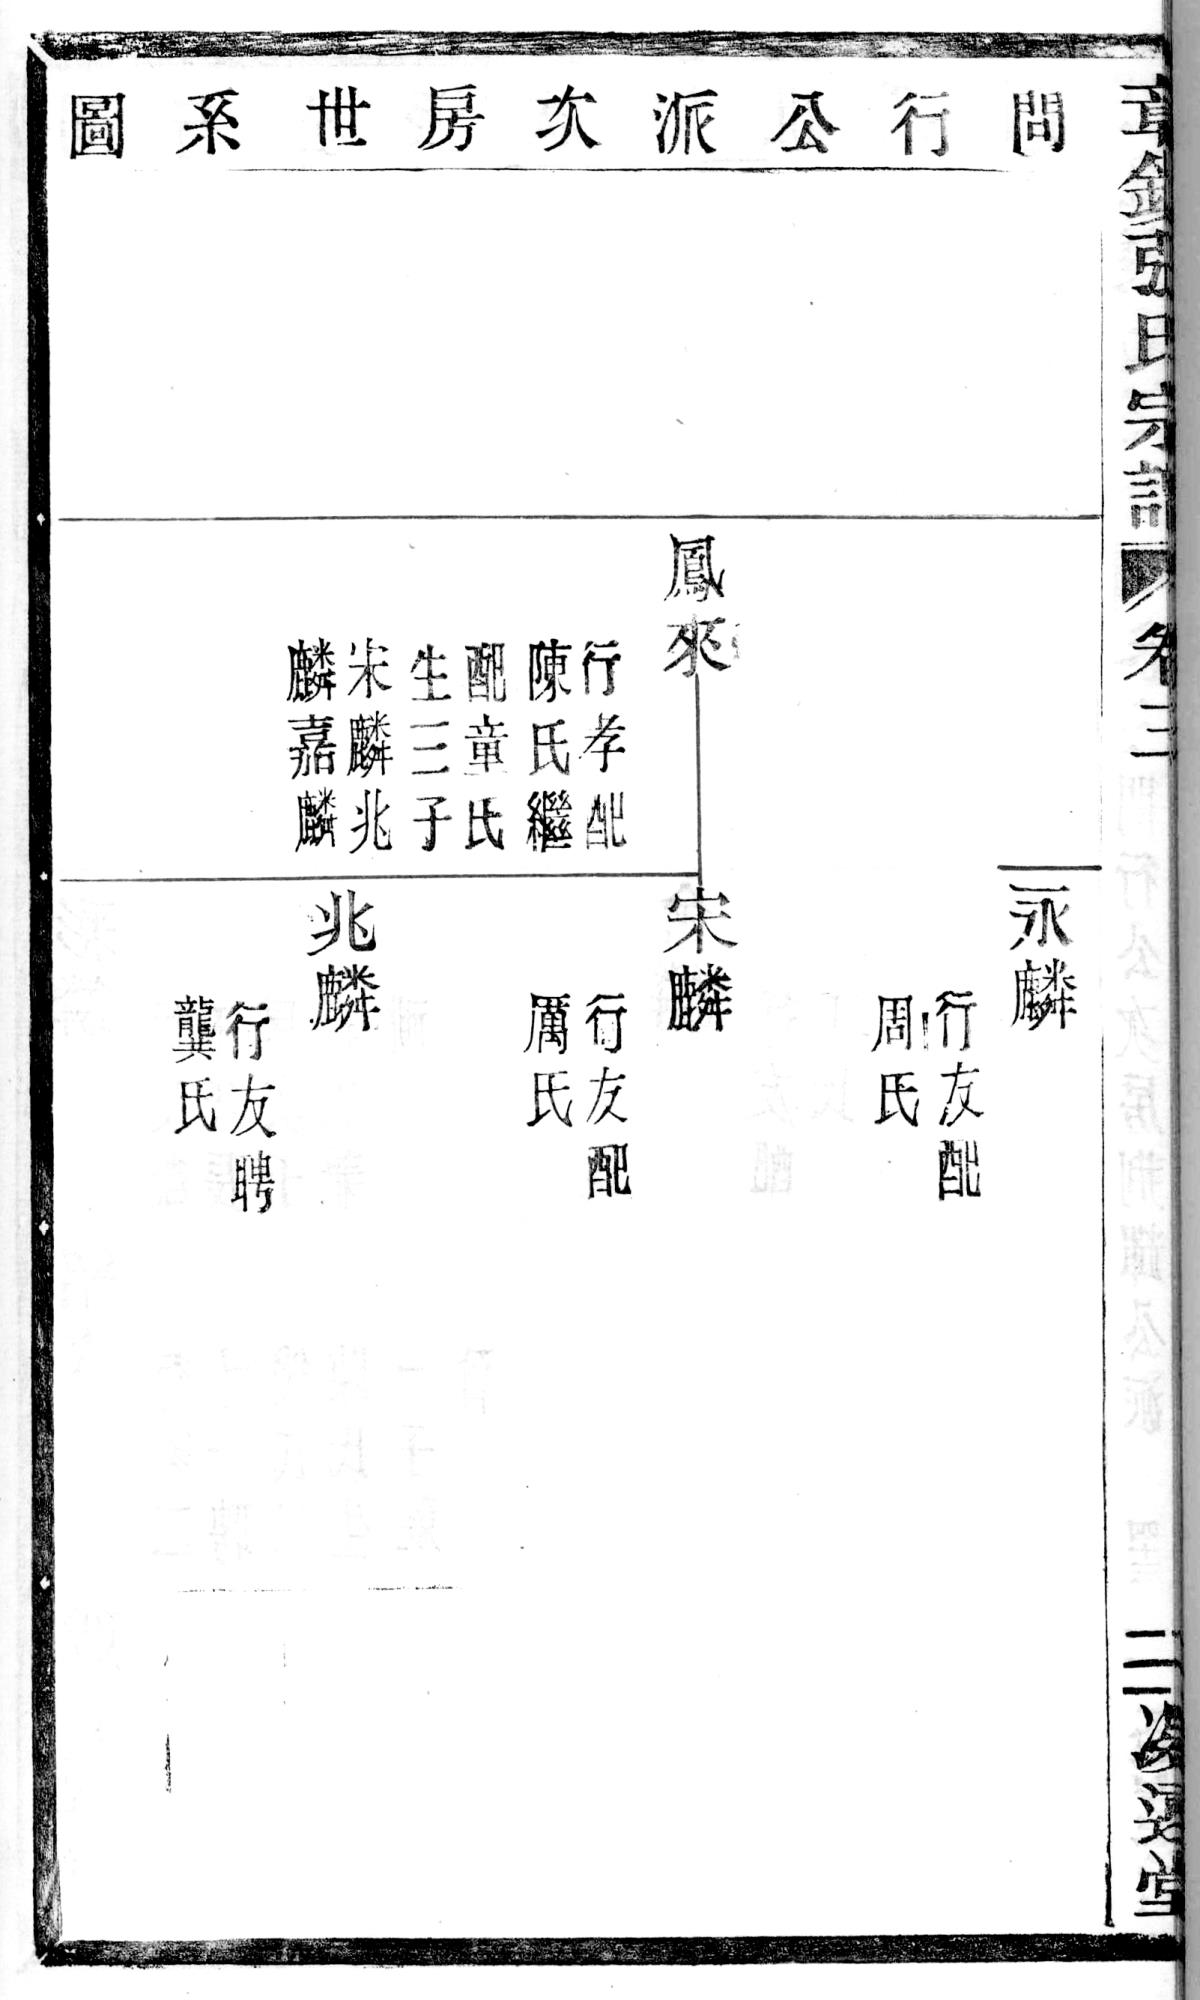 問行公派次房世系圖
張氏宗譜
卷三
二
堂
鳳來
行孝配
陳氏繼
配童氏
生三子
宋麟兆
麟嘉麟
永麟
行友配
周氏
宋麟
行友配
厲氏
兆麟
行友聘
龔氏